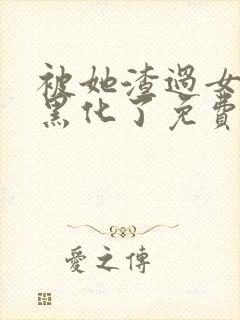 被她渣過女
黑化了免費
愛之傳